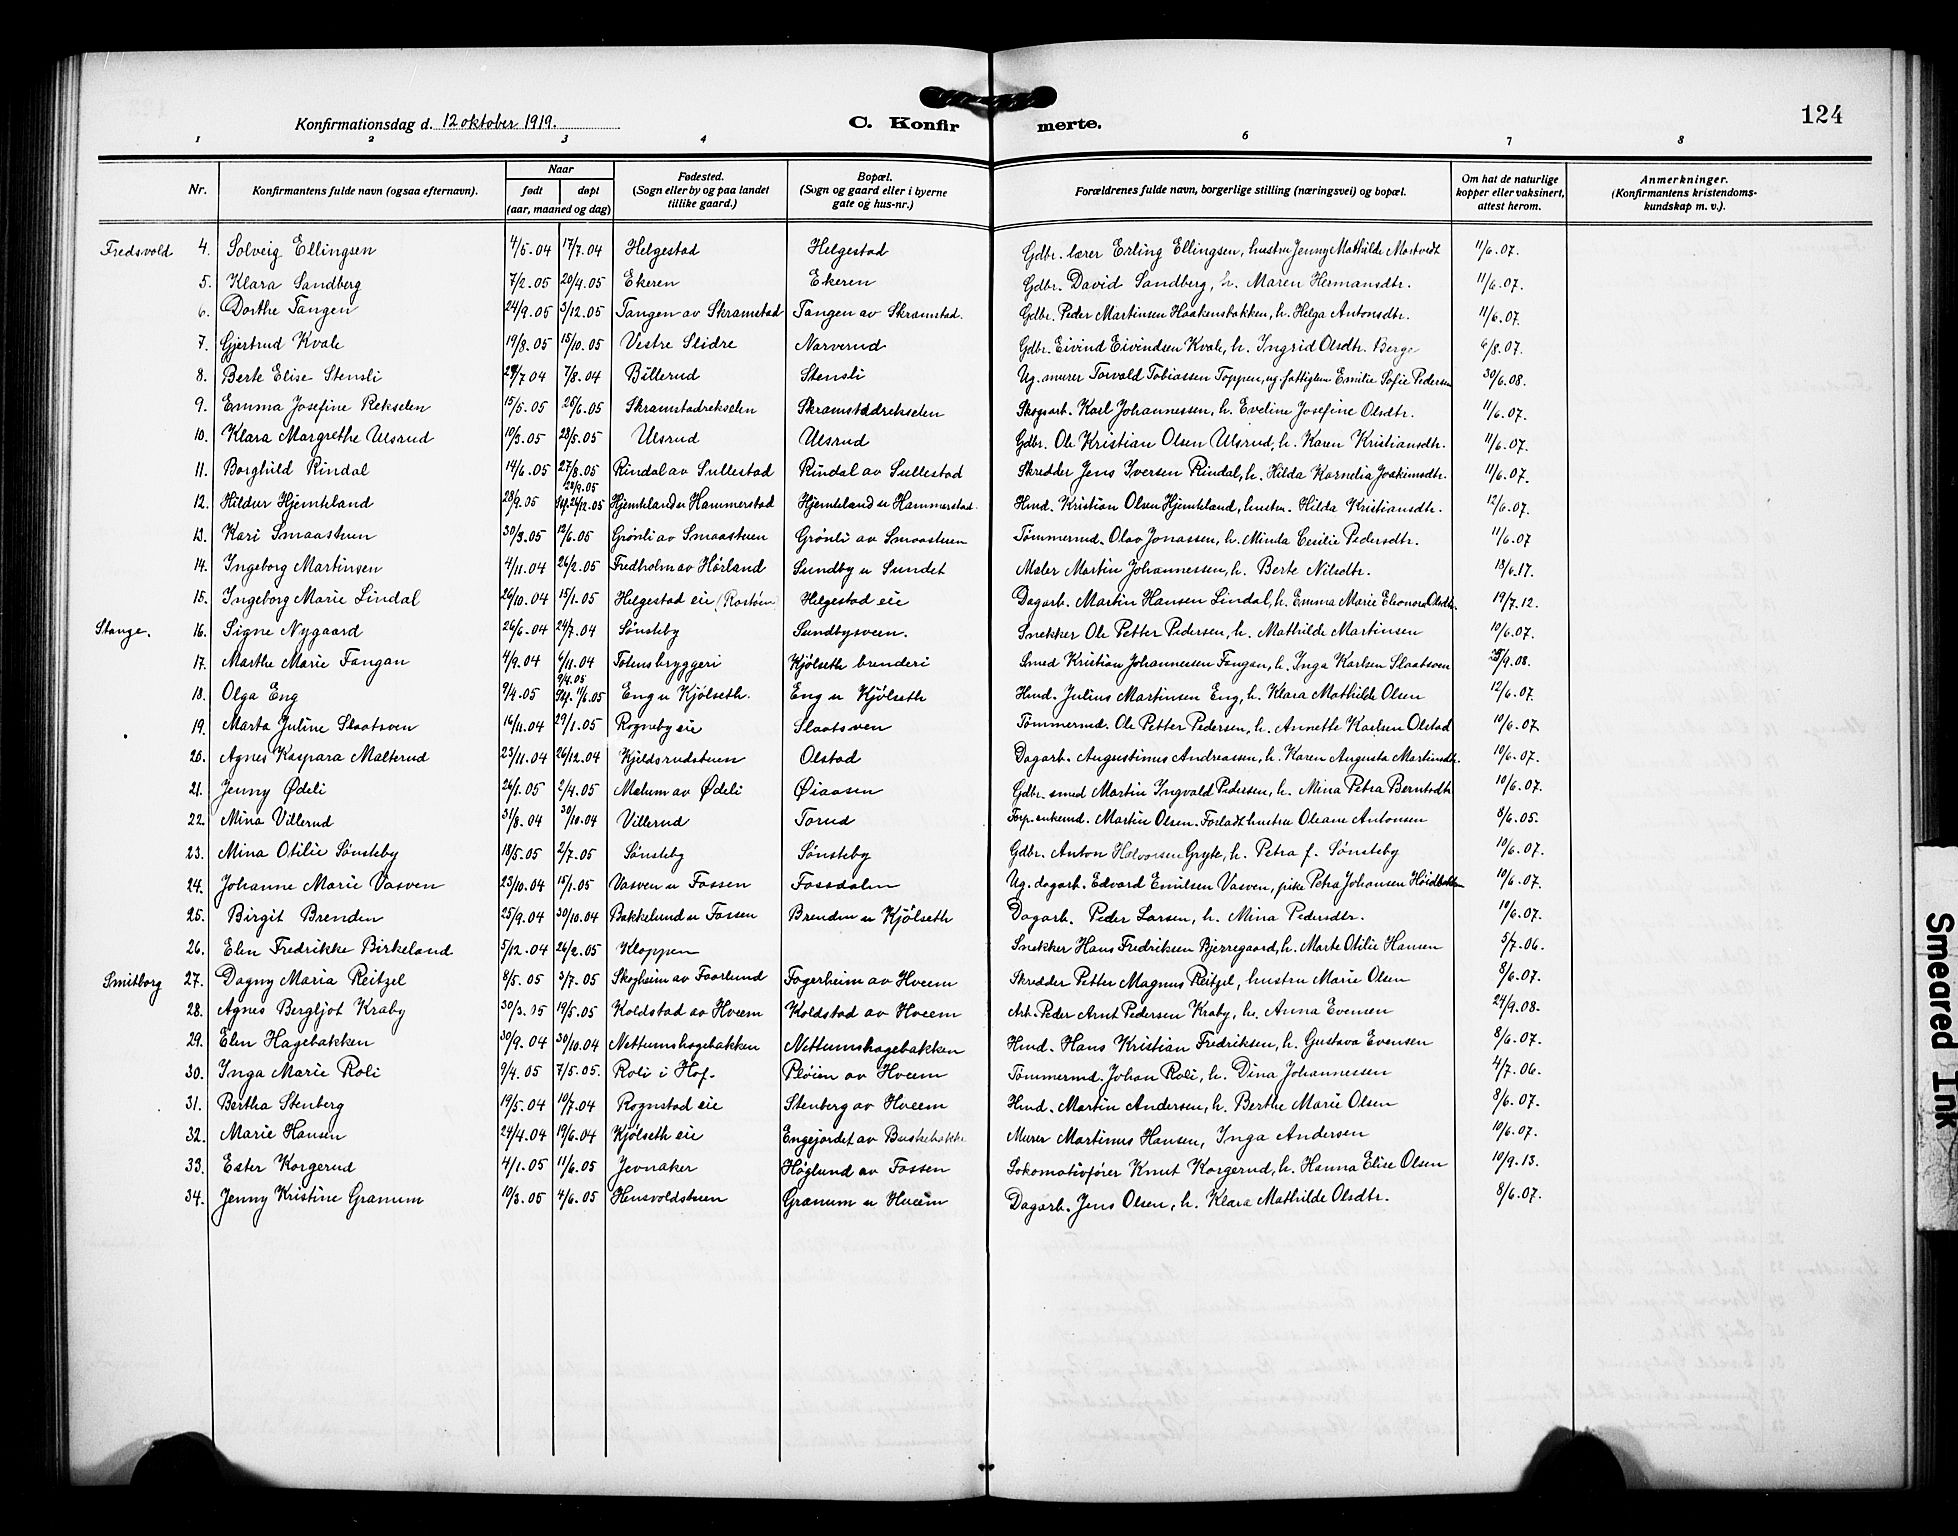 124
Konfirmationsdag d. 12 oktober 1919.
C. Konfirmerte.
1 2 3 4 6 7 8
Nr. Konfirmantens fulde navn (ogsaa efternavn). Naar født døpt (aar, maaned og dag) Fødested. (Sogn eller by og paa landet tillike gaard.) Bopæl. (Sogn og gaard eller i byerne gate og hus-nr.) Forældrenes fulde navn, borgerlige stilling (næringsvei) og bopæl. Om hat de naturlige kopper eller vaksinert, attest herom. Anmerkninger. (Konfirmantens kristendoms-kundskap m. v.).
Fredsvold 4. Solveig Ellingsen 4/5.04 17/7.04 Helgestad Helgestad Gdbr. lærer Erling Ellingsen, hustru Jenny Mathilde Mortvedt 11/6.07.
5. Klara Sandberg 7/2.05 20/4.05 Ekeren Ekeren Gdbr. David Sandberg, h. Maren Hermansdtr. 11/6.07.
6. Dorthe Tangen 24/9.05 3/12.05 Tangen av Skramstad Tangen av Skramstad. Gdbr. Peder Martinsen Haakensbakken, h. Helga Antonsdtr. 11/6.07.
7. Gjertrud Kvale 19/8.05 15/10.05 Vestre Slidre Narverud Gdbr. Eivind Eivindsen Kvale, h. Ingrid Olsdtr. Berge 6/8.07.
8. Berte Elise Stensli 29/7 04 7/8.04 Billerud Stensli Ug. murer Torvald Tobiassen Toppen, ug. fattiglem Emilie Sofie Pedersen 30/6.08.
9. Emma Josefine Rekselen 15/5.05 25/6.05 Skramstadrekselen Skramstadrekselen Skogsarb. Karl Johannessen, h. Eveline Josefine Olsdtr. 11/6.07.
10. Klara Margrethe Ulsrud 10/3.05 28/5.05 Ulsrud Ulsrud Gdbr. Ole Kristian Olsen Ulsrud, h. Karen Kristiansdtr. 11/6.07.
11. Borghild Rindal 14/6.05 27/8.05 Rindal av Sullestad Rindal av Sullestad Skredder Jens Iversen Rindal, h. Hilda Kornelia Joakimsdtr. 11/6.07.
12. Hildur Hjemteland 28/9.05 28/9.05 24/12.05 Hjemteland u Hammerstad Hjemteland u Hammerstad. Hmd. Kristian Olsen Hjemteland, hustru Hilda Kristiansdtr. 12/6.07.
13. Kari Smaastuen 30/3.05 12/6.05 Grønli av Smaastuen Grønli av Smaastuen Tømmermd. Olav Jonassen, h. Minda Cecilie Pedersdtr. 11/6.07
14. Ingeborg Martinsen 4/11.04 26/2.05 Fredholm av Hørland Sundby u Sundet Maler Martin Johannessen, h. Berte Nilsdtr. 13/6.17.
15. Ingeborg Marie Lindal 26/10.04 15/1.05 Helgestad eie Helgestad eie Dagarb. Martin Hansen Lindal, h. Emma Marie Eleonora Olsdtr. 19/7.12.
Stange. 16. Signe Nygaard 26/6.04 24/7.04 Sønsteby Sundbysveen. Snekker Ole Petter Pedersen, h. Mathilde Martinsen 10/6.07.
17. Marthe Marie Fangan 4/9.04 6/11.04 Totensbryggeri Kjølseth brenderi Smed Kristian Johannessen Fangan, h. Inga Karlsen Slaatsven /9.08.
18. Olga Eng 9/4.05 9/4.05 11/6.05 Eng u Kjølseth. Eng u Kjølseth Hmd. Julius Martinsen Eng, h. Klara Mathilde Olsen 12/6.07.
19. Marta Juline Slaatsven 16/11.04 29/1.05 Rogneby eie Slaatsven Tømmermd. Ole Petter Pedersen, h. Annette Karlsen Olstad 10/6.07.
20. Agnes Kaspara Malterud 23/11.04 26/12.04 Kjeldsrudstuen Olstad Dagarb. Augustinus Andreassen, h. Karen Augusta Martinsdtr. 10/6.07.
21. Jenny Ødeli 26/1.05 2/4.05 Malum av Ødeli Øiaasen Gdbr. smed Martin Ingvald Pedersen, h. Mina Petra Berntsdtr 10/6.07.
22. Mina Villerud 31/8.04 30/10.04 Villerud Torud Forp. enkemd. Martin Olsen. Forladt hustru Oleane Antonsen 8/6.05.
23. Mina Otilie Sønsteby 18/5.05 2/7.05 Sønsteby Sønsteby Gdbr. Anton Halvorsen Gryte, h. Petra f. Sønsteby 10/6.07.
24. Johanne Marie Vasven 23/10.04 15/1.05 Vasven u Fossen Fossdalen Ug. dagarb. Edvard Emilsen Vasven, pike Petra Johansen Høidbakken 10/6.07.
25. Birgit Brenden 25/9.04 30/10.04 Bakkelund u Fossen Brenden u Kjølseth Dagarb. Peder Larsen, h. Mina Pedersdtr. 10/6.07.
26. Elen Fredrikke Birkeland 5/12.04 26/2.05 Kloppen Snekker Hans Fredriksen Bjerregaard, h. Marte Otilie Hansen 5/7.06.
Smitborg 27. Dagny Maria Reitzel 8/5.05 3/7.05 Skogheim av Faarlund Fagerheim av Hveem Skredder Petter Magnus Reitzel, hustru Marie Olsen 8/6.07.
28. Agnes Bergljot Kraby 30/3.05 19/5.05 Koldstad av Hveem Koldstad av Hveem Arb. Peder Arnt Pedersen Kraby, h. Anna Evensen 24/9.08.
29. Elen Hagebakken 30/9.04 30/10.04 Nettumshagebakken Nettumshagebakken Hmd. Hans Kristian Fredriksen, h. Gustava Evensen 8/6.07.
30. Inga Marie Roli 9/4.05 7/5.05. Roli i Hof. Pløien av Hveem Tømmermd. Johan Roli, h. Dina Johannessen 4/7.06.
31. Bertha Stenberg 19/5.04 10/7.04 Rognstad eie Stenberg av Hveem Hmd. Martin Andersen, h. Berthe Marie Olsen 8/6.07.
32. Marie Hansen 24/4.04 19/6.04 Kjølseth eie Engejordet av Buskebakk. Murer Martinus Hansen, Inga Andersen 10/6.07.
33. Ester Korgerud 4/1.05 11/6.05 Jevnaker Høglund av Fossen Lokomotivfører Knut Korgerud, h. Hanna Elise Olsen 10/9.13.
34. Jenny Kristine Granum 10/3.05 4/6.05 Hensvoldstuen Granum u Hveem Dagarb. Jens Olsen, h. Klara Mathilde Olsdtr. 8/6.07.
Smeared Ink